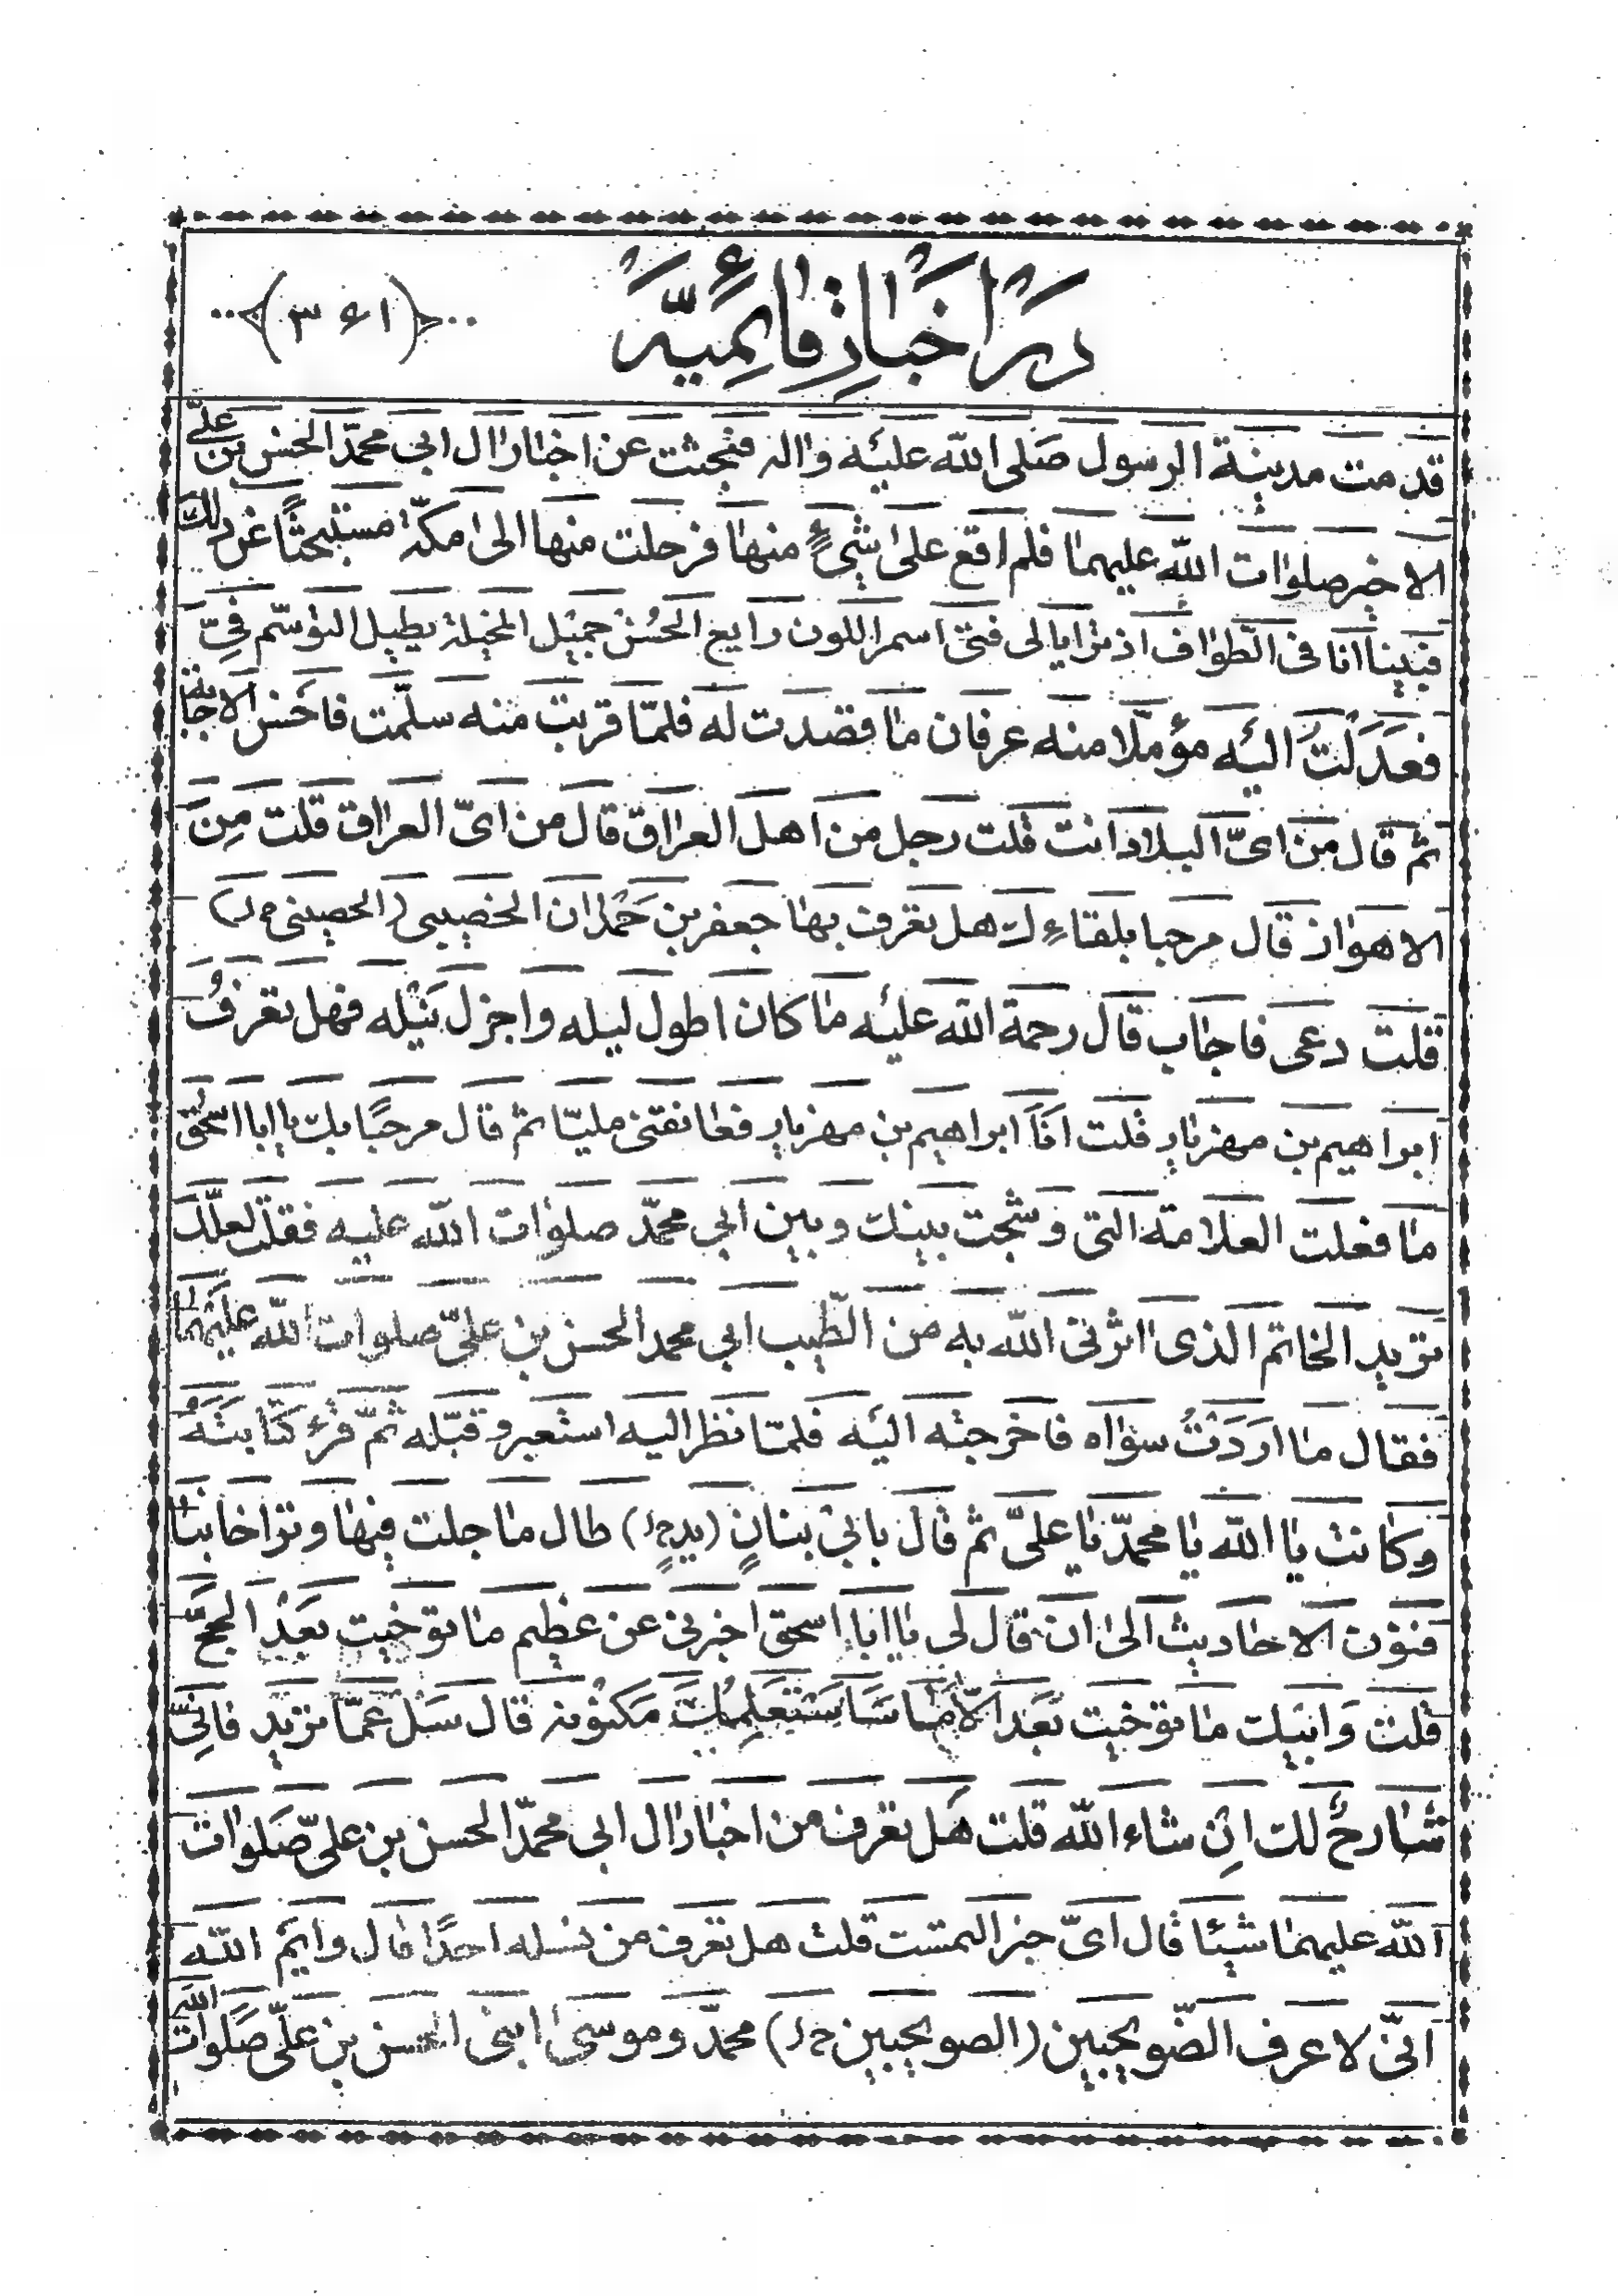 در اخبار قائمیه
(۳۶۱)
قدمت مدینة الرسول صلی الله علیه واله فبحثت عن اخبار ال ابی محمد الحسن بن علی
الاخیر صلوات الله علیهما فلم اقع علی شیء منها فرحلت منها الی مکة مستبحثا عن ذلك
فبینا انا فی الطواف اذ ترایا لی فتی اسمر اللون رایع الحسن جمیل المخیلة یطیل التوسم فی
فعدلت الیه مؤملا منه عرفان ما قصدت له فلما قربت منه سلمت فاحسن الاجابة
ثم قال من ای البلاد انت قلت رجل من اهل العراق قال من ای العراق قلت من
الاهواز قال مرحبا بلقاءك هل تعرف بها جعفر بن حمدان الخضیبی (الحصینی خ ل)
قلت دعی فاجاب قال رحمة الله علیه ما کان اطول لیله واجزل نیله فهل تعرف
ابراهیم بن مهزیار قلت انا ابراهیم بن مهزیار فعانقنی ملیا ثم قال مرحبا بك یا ابا اسحق
ما فعلت العلامة التی وشجت بینك وبین ابی محمد صلوات الله علیه فقلت لعلك
ترید الخاتم الذی اثرنی الله به من الطیب ابی محمد الحسن بن علی صلوات الله علیهما
فقال ما اردت سواه فاخرجته الیه فلما نظر الیه استعبر وقبله ثم قرء کتابته
وکانت یا الله یا محمد یا علی ثم قال بابی بنان (ید خ ل) طال ما جلت فیها وتراخا بنا
فنون الاحادیث الی ان قال لی یا ابا اسحق اخبرنی عن عظیم ما توخیت بعد الحج
قلت وابیك ما توخیت بعد الا ما ساستعلمك مکنونه قال سل عما ترید فانی
شارح لك ان شاء الله قلت هل تعرف من اخبار ال ابی محمد الحسن بن علی صلوات
الله علیهما شیئا قال ای خبر التمست قلت هل تعرف من نسله احدا قال وایم الله
انی لاعرف الضویجبین (الصویجبین خ ل) محمد وموسی ابنی الحسن بن علی صلوات الله